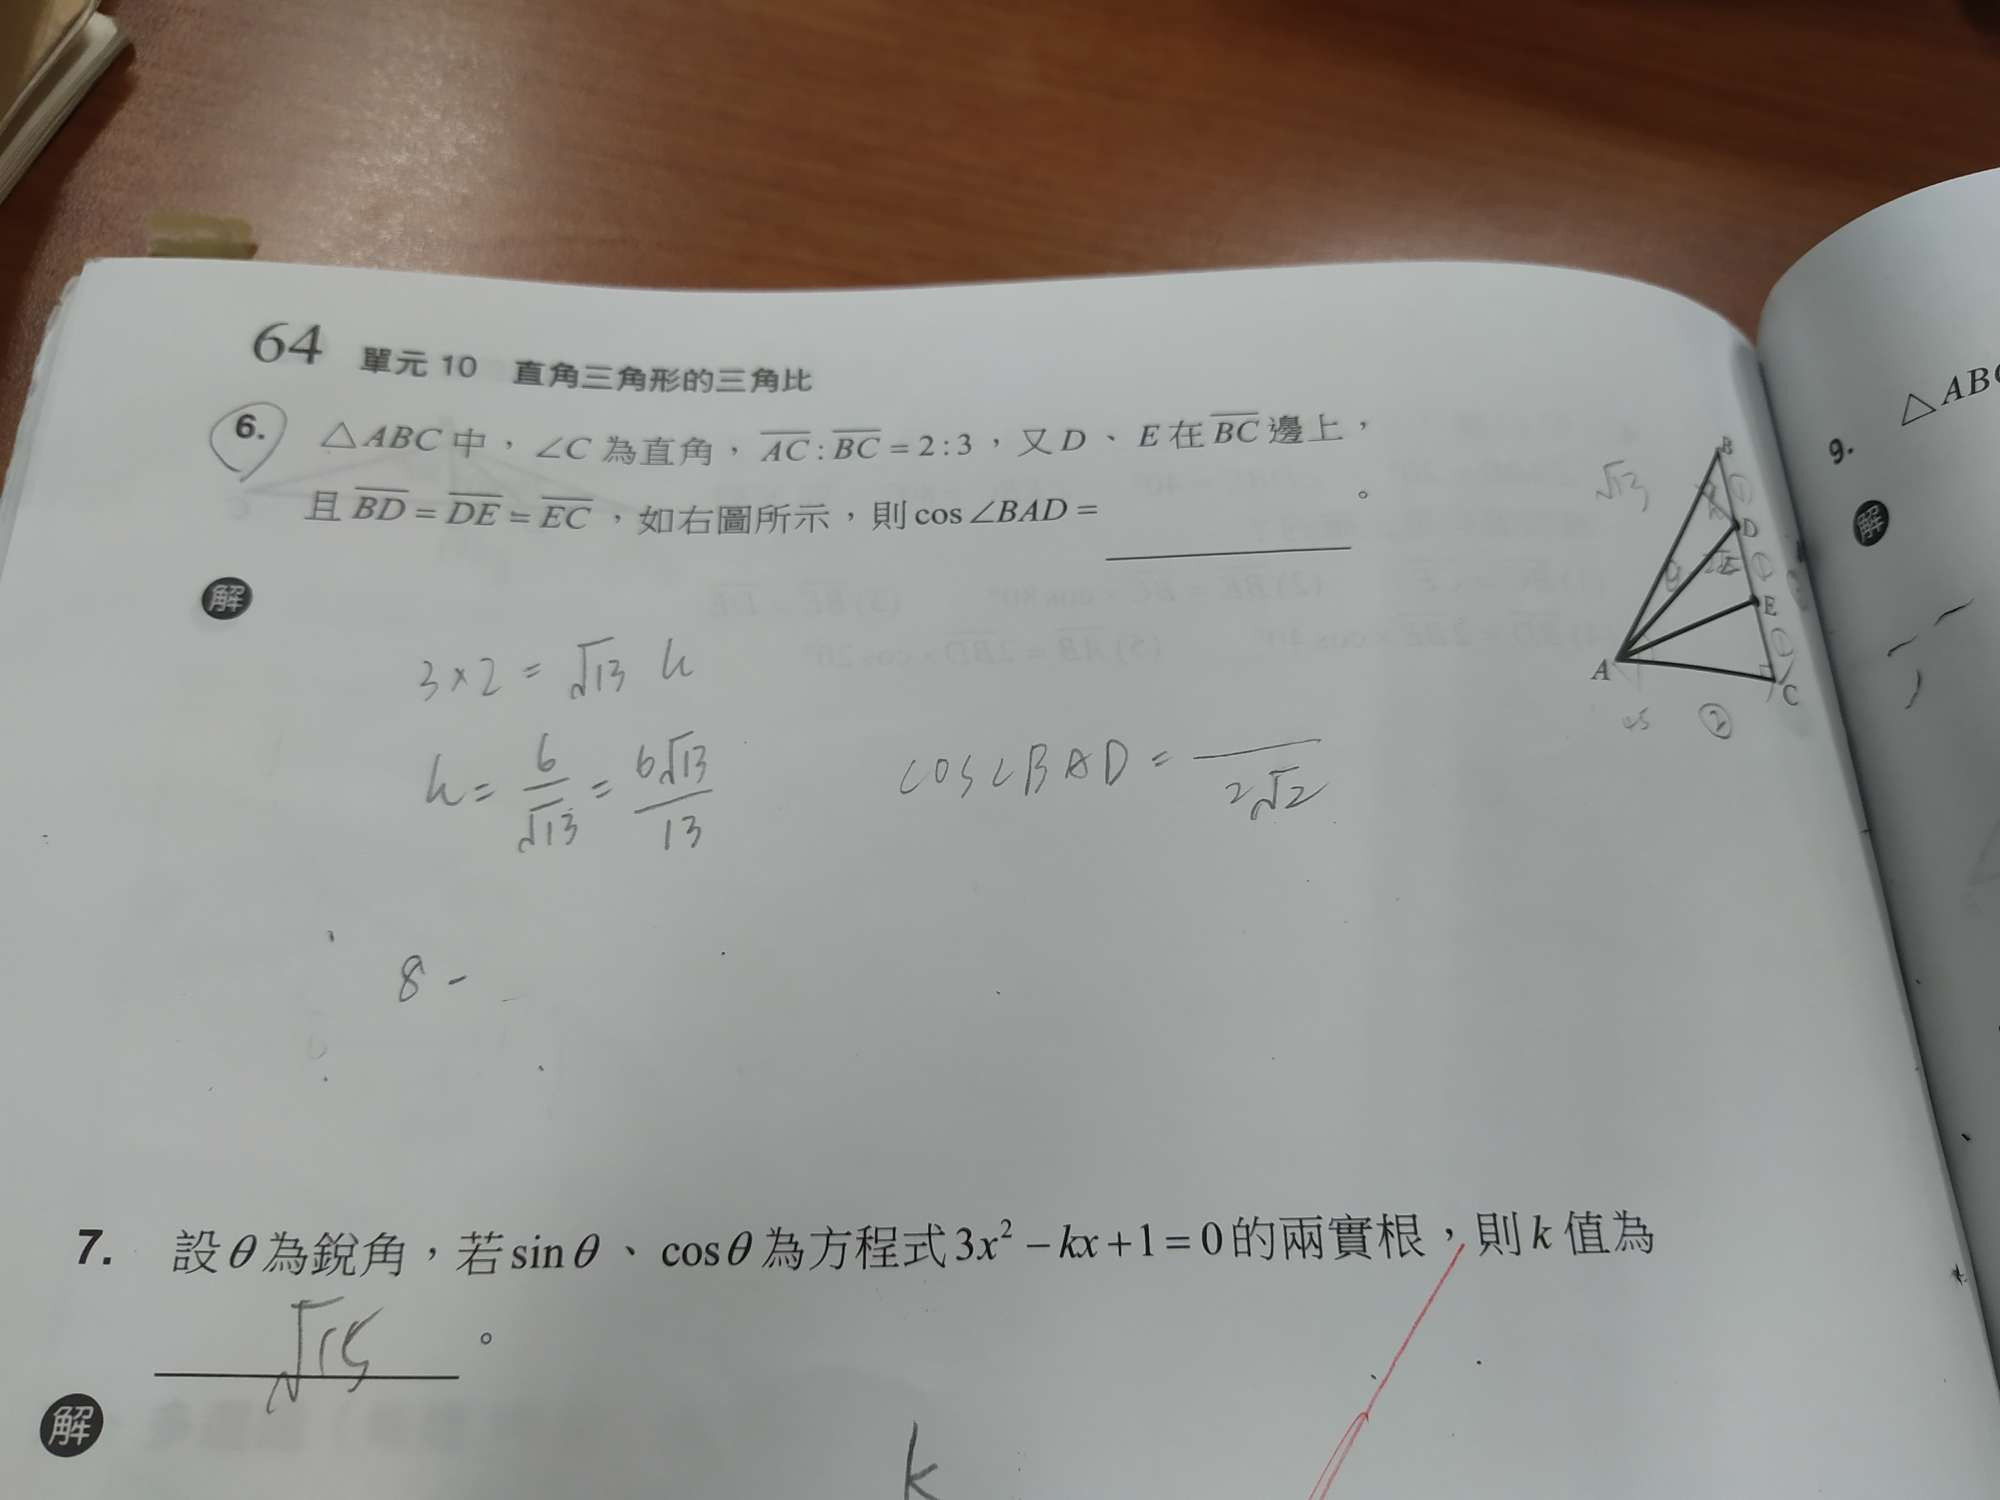 64 單元 10 直角三角形的三角比
6. △ABC 中，∠C 為直角，AC : BC = 2 : 3，又 D、E 在 BC 邊上，
且 BD = DE = EC，如右圖所示，則 cos∠BAD = ＿＿＿＿。
B
√13
①
D
①
E
①
A
C
②
解
3×2 = √13 h
h = 6/√13 = 6√13/13
cos∠BAD = /2√2
8 -
7. 設 θ 為銳角，若 sinθ、cosθ 為方程式 3x² − kx + 1 = 0 的兩實根，則 k 值為
√15 。
解
k
9. △ABC
解